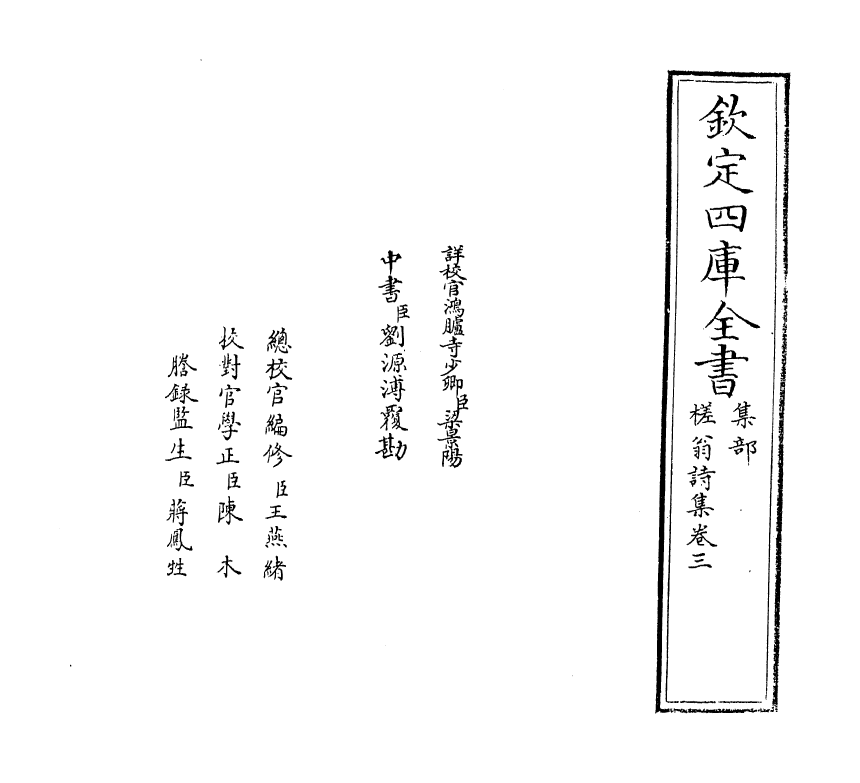 欽定四庫全書
集部
槎翁詩集卷三
詳校官鴻臚寺少卿臣梁景陽
中書臣劉源溥覆勘
總校官編修臣王燕緒
校對官學正臣陳木
謄錄監生臣蔣鳳甡